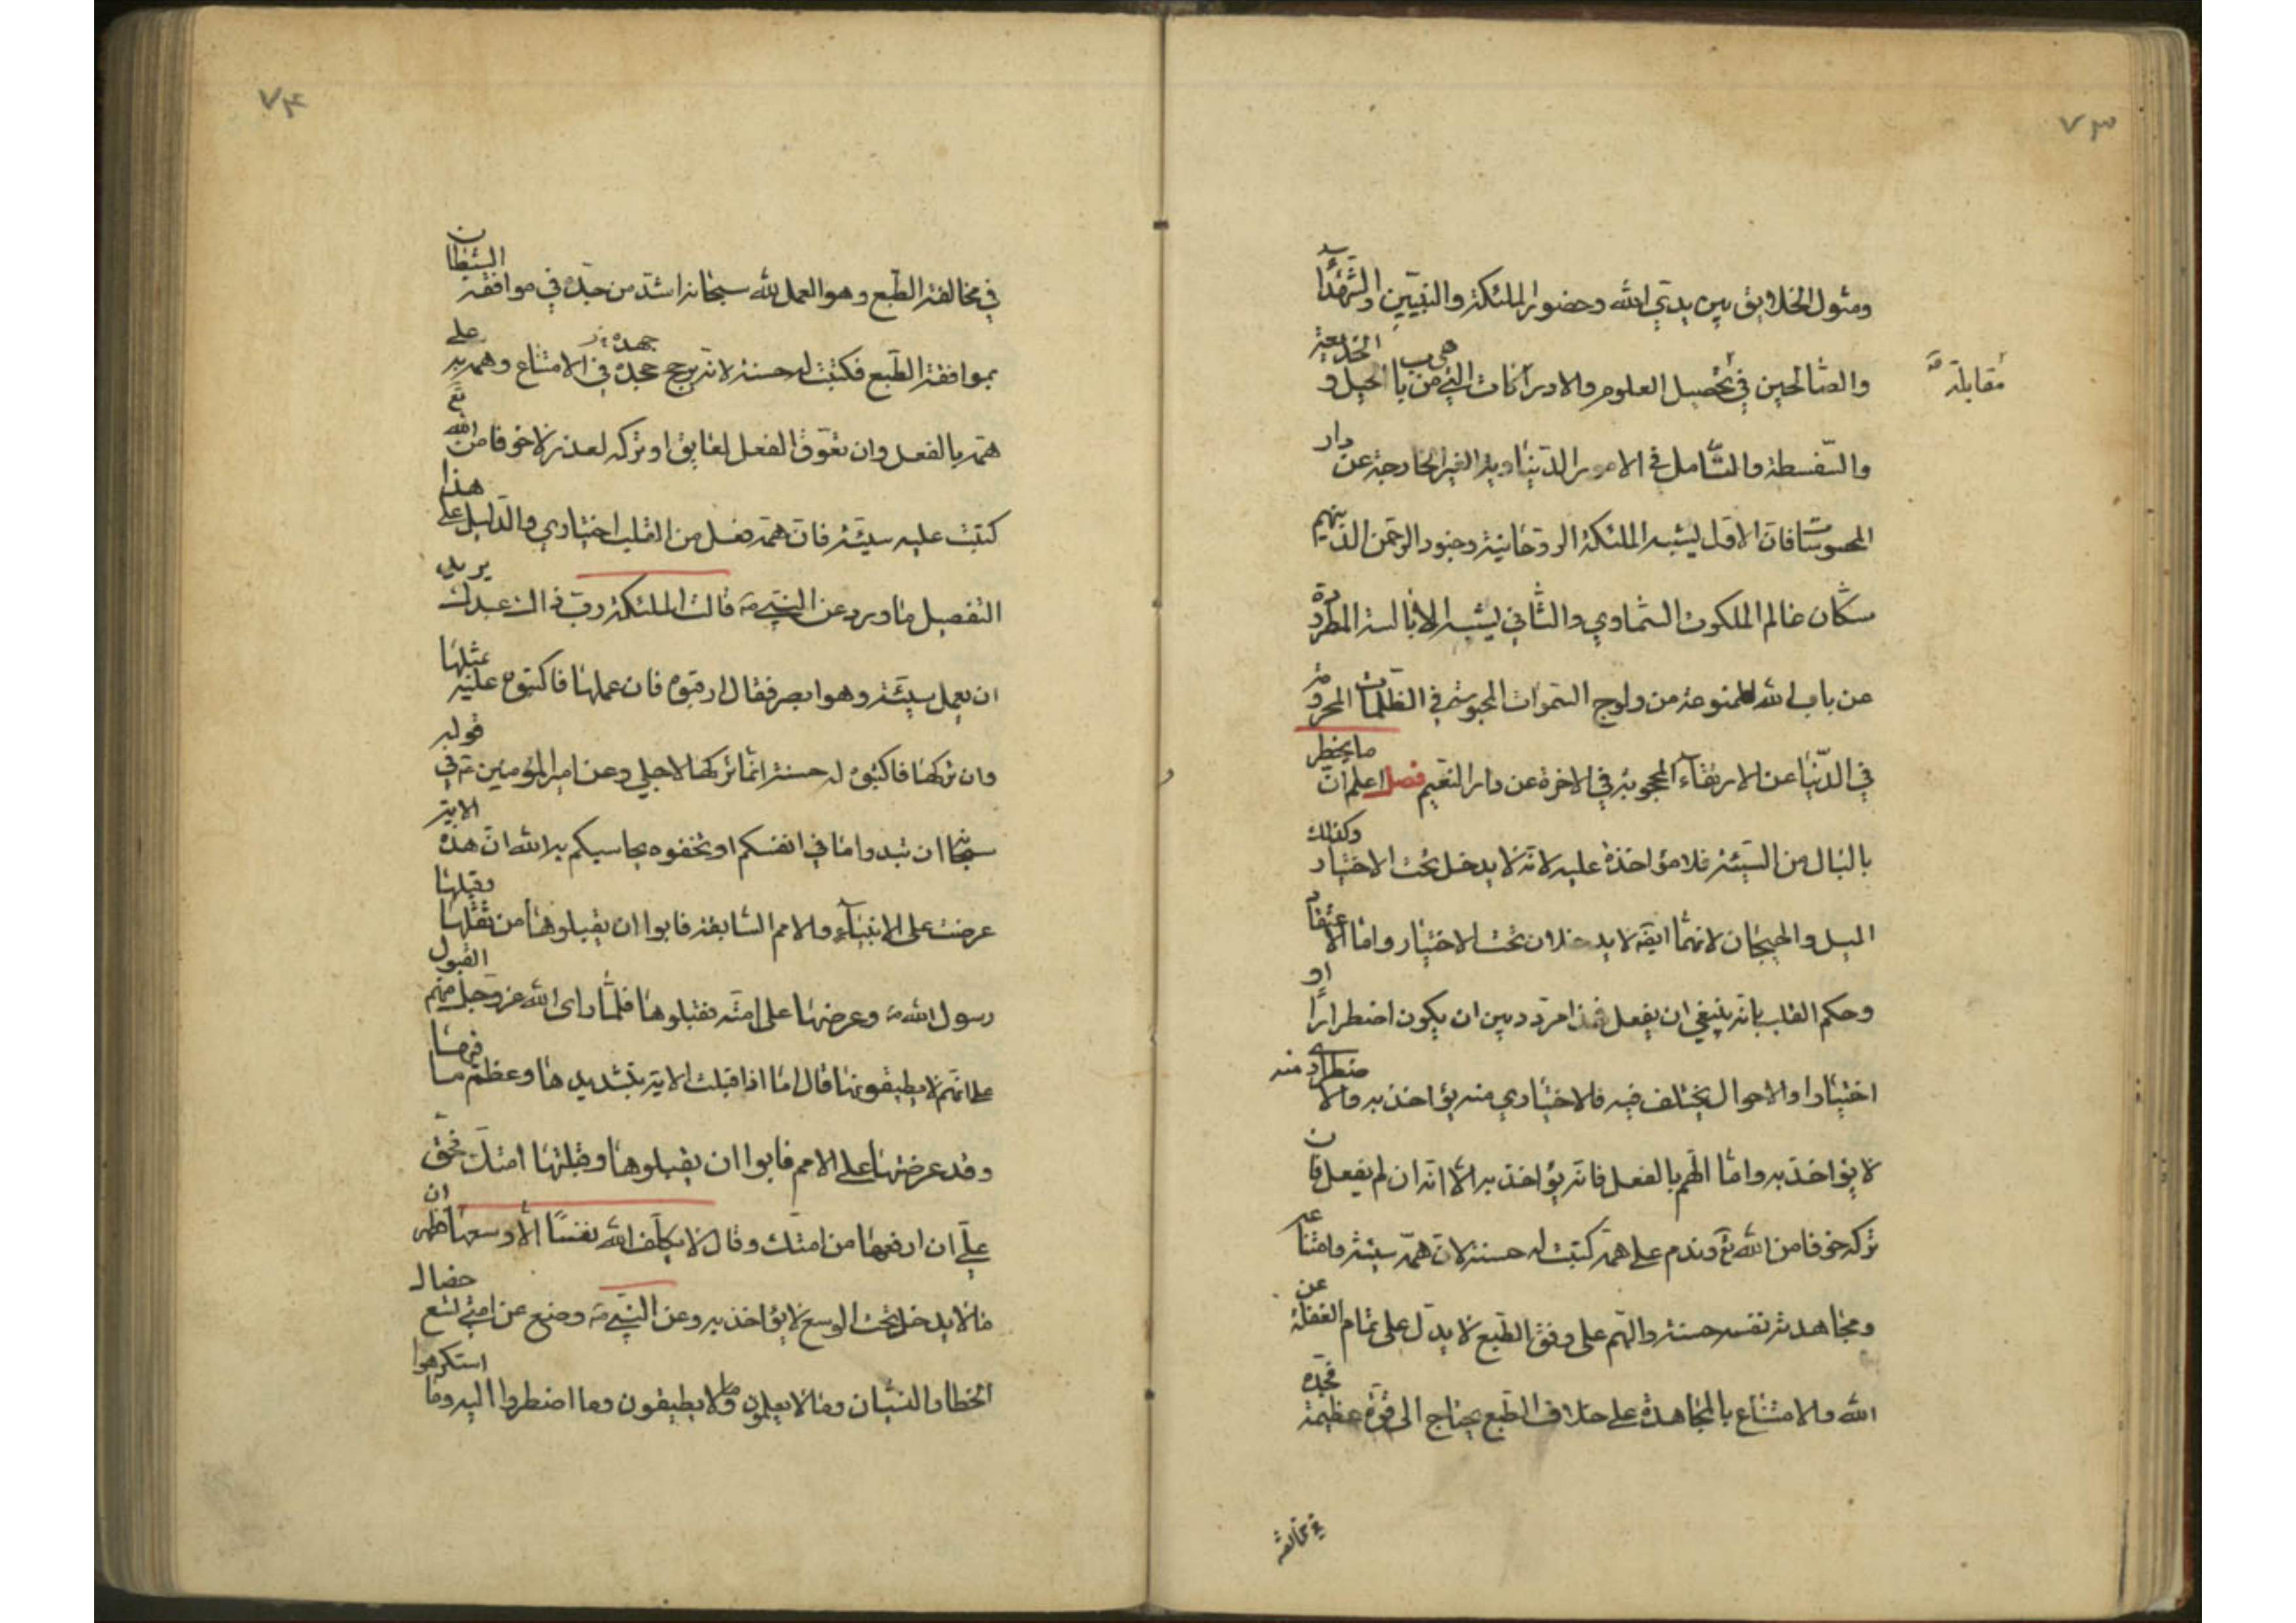 ٧٣
ومثول الخلايق بين يدي الله وحضور الملئكة والنبيّين والشّهداء
والصّالحين في تحصيل العلوم والادراكات التي من باب الحيل و الخديعة
مقابلة
والسّفسطة والتّأمل في الامور الدّنياوية الغير الخارجة عن دار
المحسوسات فانّ الاوّل يشبه الملئكة الروحانية وجنود الرّحمن الذين هم
سكّان عالم الملكوت السّماوي والثّاني يشبه الابالسة المطرودة
عن باب الله الممنوعة من ولوج السّموات المحبوسة في الظّلمات المحرومة
في الدّنيا عن الارتقاء المحجوبة في الاخرة عن دار النّعيم فصل اعلم انّ ما يخطر
بالبال من السّيئة فلا مؤاخذة عليه لانّه لا يدخل تحت الاختيار وكذلك
الميل والهيجان لانهما ايضا لا يدخلان تحت الاختيار وامّا الاعتقاد
وحكم القلب بانّه ينبغي ان يفعل فهذا مردد بين ان يكون اضطرارًا او
اختيارا والاحوال يختلف فيه فالاختياري منه يؤاخذ به والاضطراري منه
لا يؤاخذ به وامّا الهّم بالفعل فانّه يؤاخذ به الّا انّه ان لم يفعل فان
تركه خوفا من الله تع وندم على همّه كتبت له حسنة لانّ همّه سيئة وامتناعه
ومجاهدته نفسه حسنة والهّم على وفق الطّبع لا يدّل على تمام الغفلة عن
الله والامتناع بالمجاهدة على خلاف الطّبع يحتاج الى قوّة عظيمة فجدّه
في مخالفة
٧٤
في مخالفة الطّبع وهو العمل لله سبحانه اشدّ من جدّه في موافقة الشيطان
بموافقة الطّبع فكتبت له حسنة لانّه يرجح جهده في الامتناع وهمه به على
همّه بالفعل وان تعوّق الفعل لعايق او تركه لعذر لا خوفا من الله تع
كتبت عليه سيّئة فانّ همّه فعل من القلب اختياري والدّليل على هذا
التفصيل ما ورد عن النبي ص قالت الملئكة ربّ ذاك عبدك يريد
ان يعمل سيّئة وهو ابصر فقال ارقبوه فان عملها فاكتبوه عليه بمثلها
وان تركها فاكتبوه له حسنة انّما تركها لاجلي وعن امير المؤمنين ع في قوله
سبحانه ان تبدوا ما في انفسكم او تخفوه يحاسبكم به الله انّ هذه الاية
عرضت على الانبياء والامم السّابقة فابوا ان يقبلوها من ثقلها وقبلها
رسول الله ص وعرضها على امّته فقبلوها فلمّا راى الله عزوجل منهم القبول
على انّهم لا يطيقونها قال امّا اذا قبلت الاية بتشديدها وعظم ما فيها
وقد عرضتها على الامم فابوا ان يقبلوها وقبلتها امتك فحقّ
عليّ ان ارفعها من امتك وقال لا يكلّف الله نفسًا الّا وسعها فظهر ان
ما لا يدخل تحت الوسع لا يؤاخذ به وعن النّبي ص وضع عن امتي تسع خصال
الخطا والنسيان وما لا يعلمون وما لا يطيقون وما اضطروا اليه وما استكرهوا